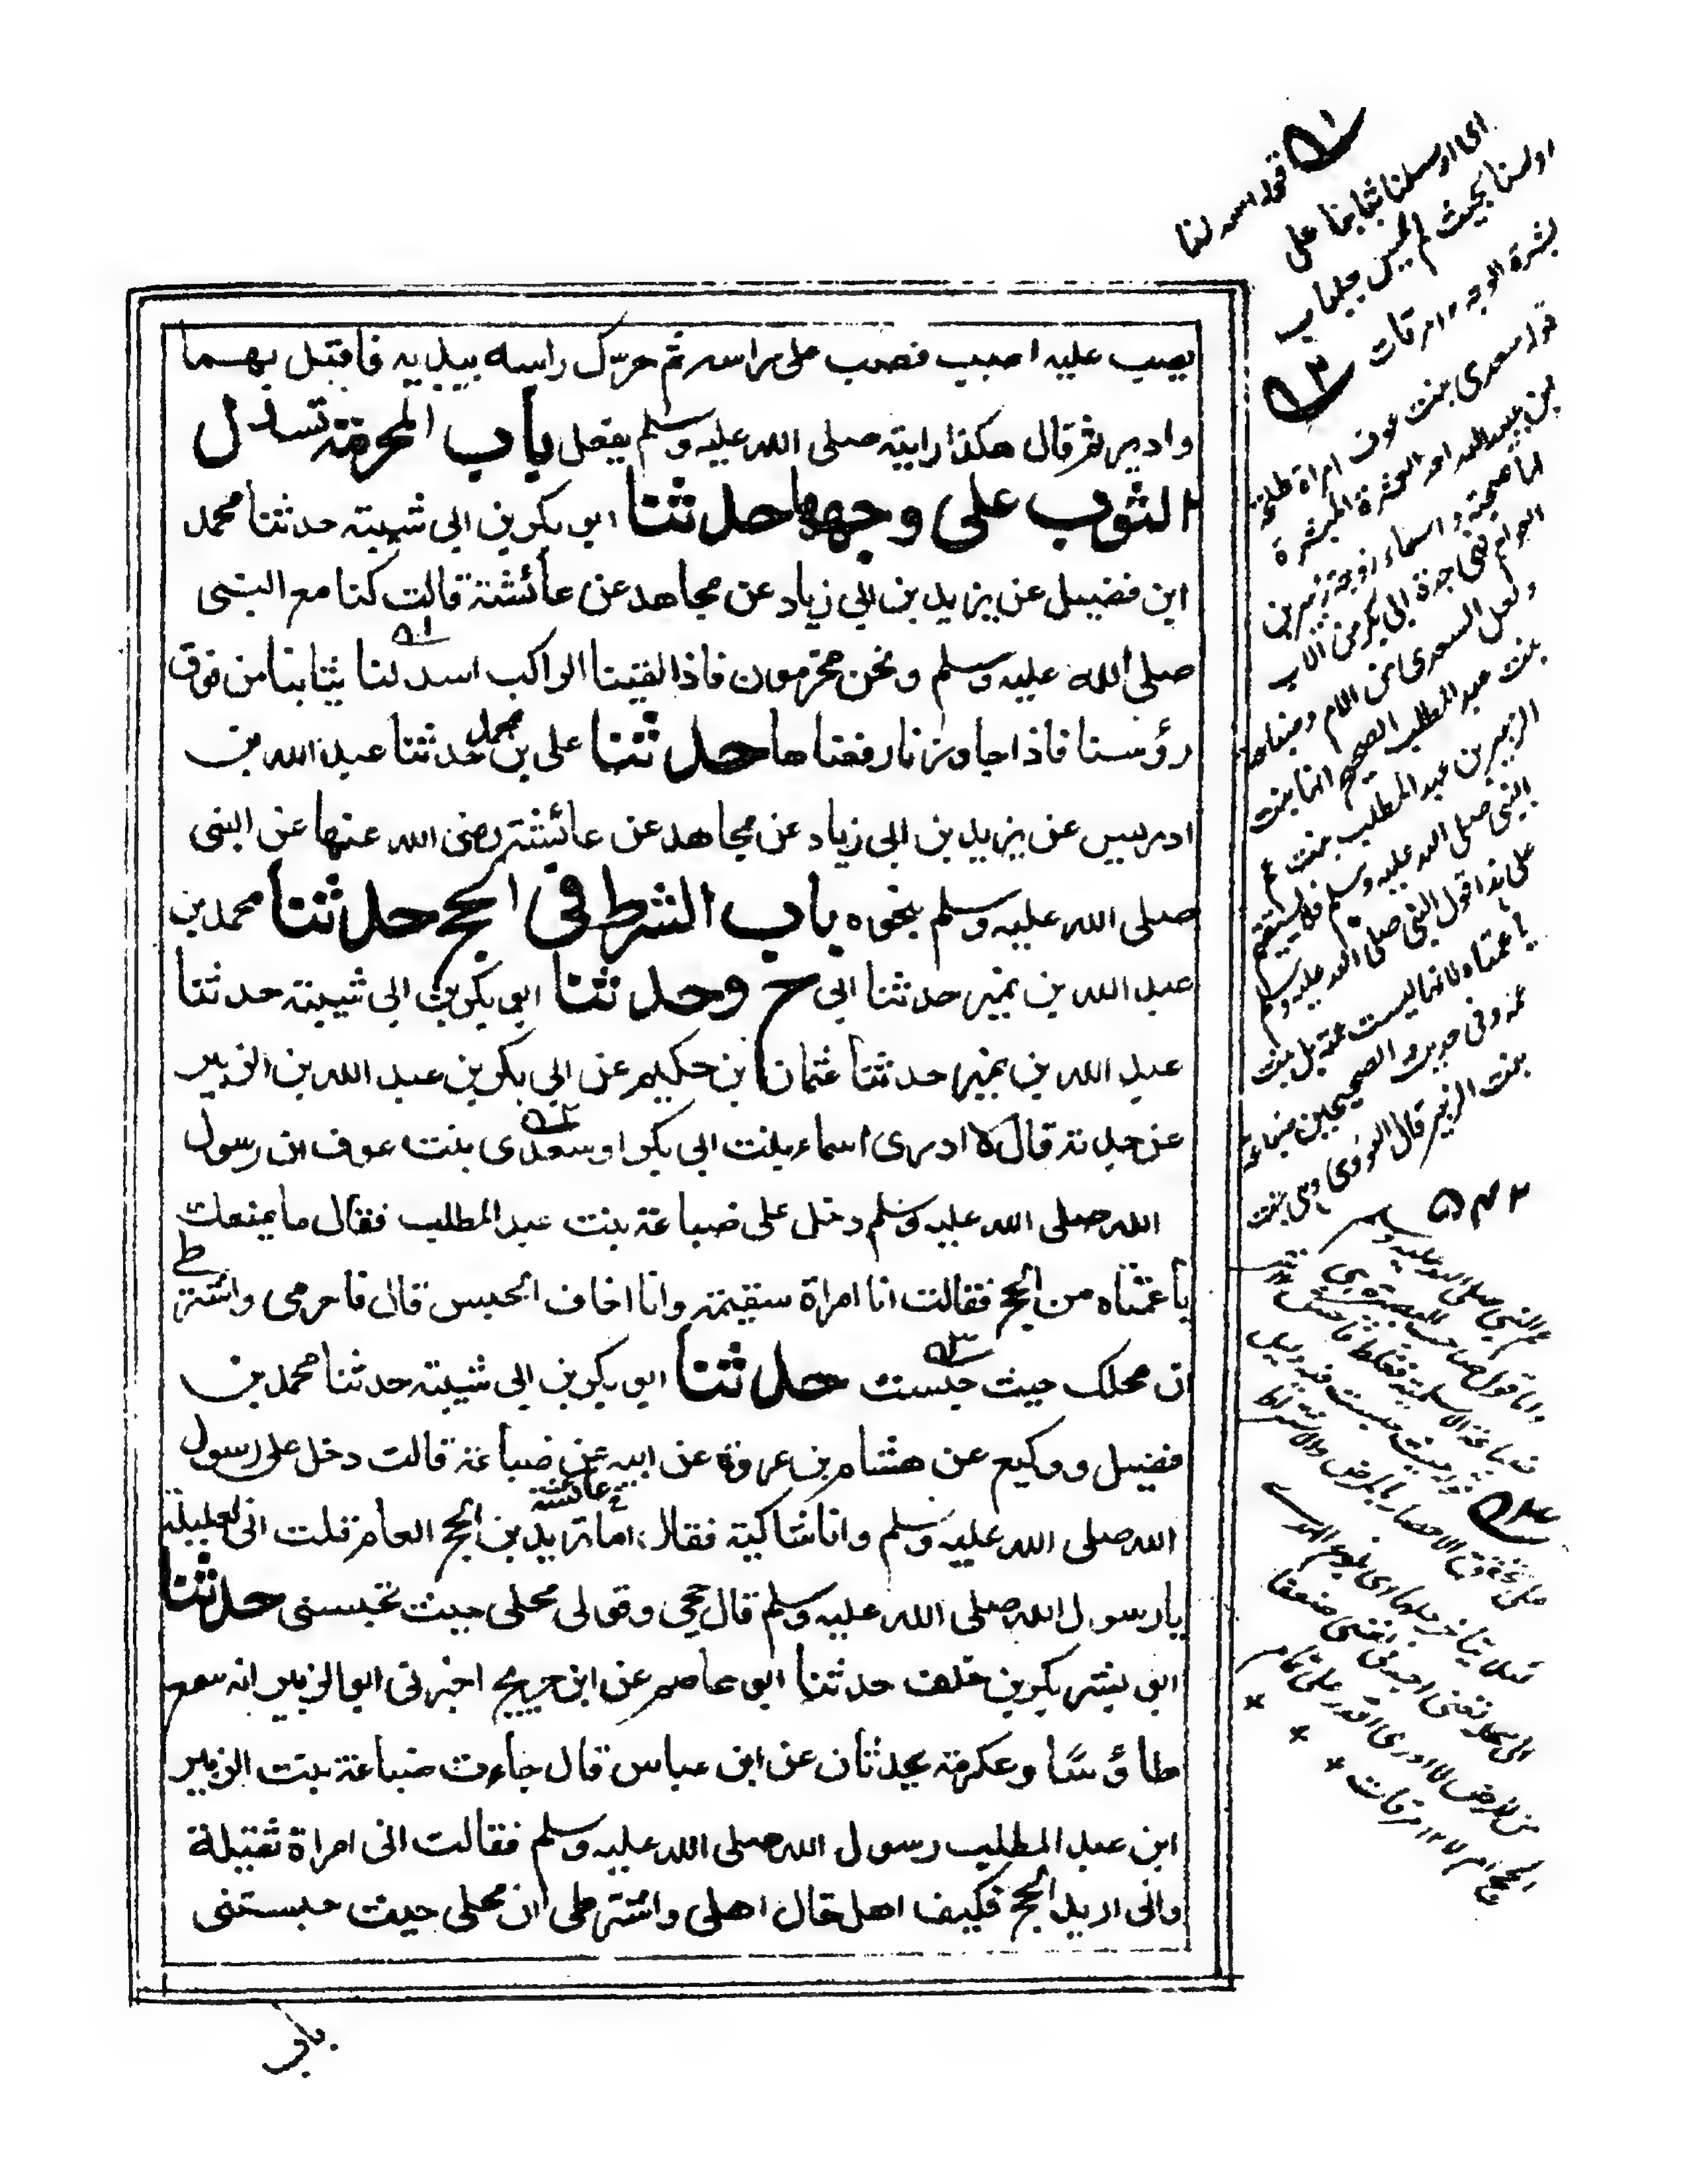 يصب عليه اصبب فصب على راسه ثم حرّك راسه بيديه فاقبل بهما
وادبر ثم قال هكذا رايته صلى الله عليه وسلم يفعل باب المحرمة تسدل
الثوب على وجهها حدثنا ابو بكر بن ابي شيبة حدثنا محمد
ابن فضيل عن يزيد بن ابي زياد عن مجاهد عن عائشة قالت كنا مع النبى
صلى الله عليه وسلم ونحن محرمون فاذا لقينا الراكب اسدلنا ثيابنا من فوق
رؤسنا فاذا جاوزنا رفعناها حدثنا على بن محمد حدثنا عبد الله بن
ادريس عن يزيد بن ابي زياد عن مجاهد عن عائشة رضى الله عنها عن النبى
صلى الله عليه وسلم بنحوه باب الشرط فى الحج حدثنا محمد بن
عبد الله بن نمير حدثنا ابى ح وحدثنا ابو بكر بن ابى شيبة حدثنا
عبد الله بن نمير حدثنا عثمان بن حكيم عن ابى بكر بن عبد الله بن الزبير
عن جدته قال لا ادرى اسماء بنت ابى بكر او سعدى بنت عوف ان رسول
الله صلى الله عليه وسلم دخل على ضباعة بنت عبد المطلب فقال ما يمنعك
يا عمتاه من الحج فقالت انا امراة سقيمة وانا اخاف الحبس قال فاحرمى واشترطى
ان محلك حيث حبست حدثنا ابو بكر بن ابى شيبة حدثنا محمد بن
فضيل ووكيع عن هشام بن عروة عن ابيه عن ضباعة قالت دخل على رسول
عائشة
الله صلى الله عليه وسلم وانا شاكية فقال اما تريدين الحج العام قلت انى لعليلة
يا رسول الله صلى الله عليه وسلم قال حجى وقولى محلى حيث تحبسنى حدثنا
ابو بشر بكر بن خلف حدثنا ابو عاصم عن ابن جريج اخبرنى ابو الزبير انه سمع
طاؤسًا وعكرمة يحدثان عن ابن عباس قال جاءت ضباعة بنت الزبير
ابن عبد المطلب رسول الله صلى الله عليه وسلم فقالت انى امراة ثقيلة
وانى اريد الحج فكيف اهل قال اهلى واشترطى ان محلى حيث حبستنى
قوله اسدلنا
اى ارسلنا ثيابنا على
اولسنا بحيث لم يمس جلباب
بشرة الوجه ١٢ مرقات
قوله سعدى بنت عوف امراة طلحة
بن عبيد الله احد العشرة المبشرة
لها صحبة واسماء زوجة زبير بن
العوام فهى جدة ابى بكر من الاب
ولعل السعدى من الام وضباعة
بنت عبد المطلب الصحيح انها بنت
الزبير بن عبد المطلب بنت عم
النبى صلى الله عليه وسلم فلا يستقيم
على هذا قول النبى صلى الله عليه وسلم
يا عمتاه لانها ليست عمته بل بنت
عمه وفى حديث الصحيحين ضباعة
بنت الزبير قال النووى وهى بنت
عم النبى صلى الله عليه وسلم